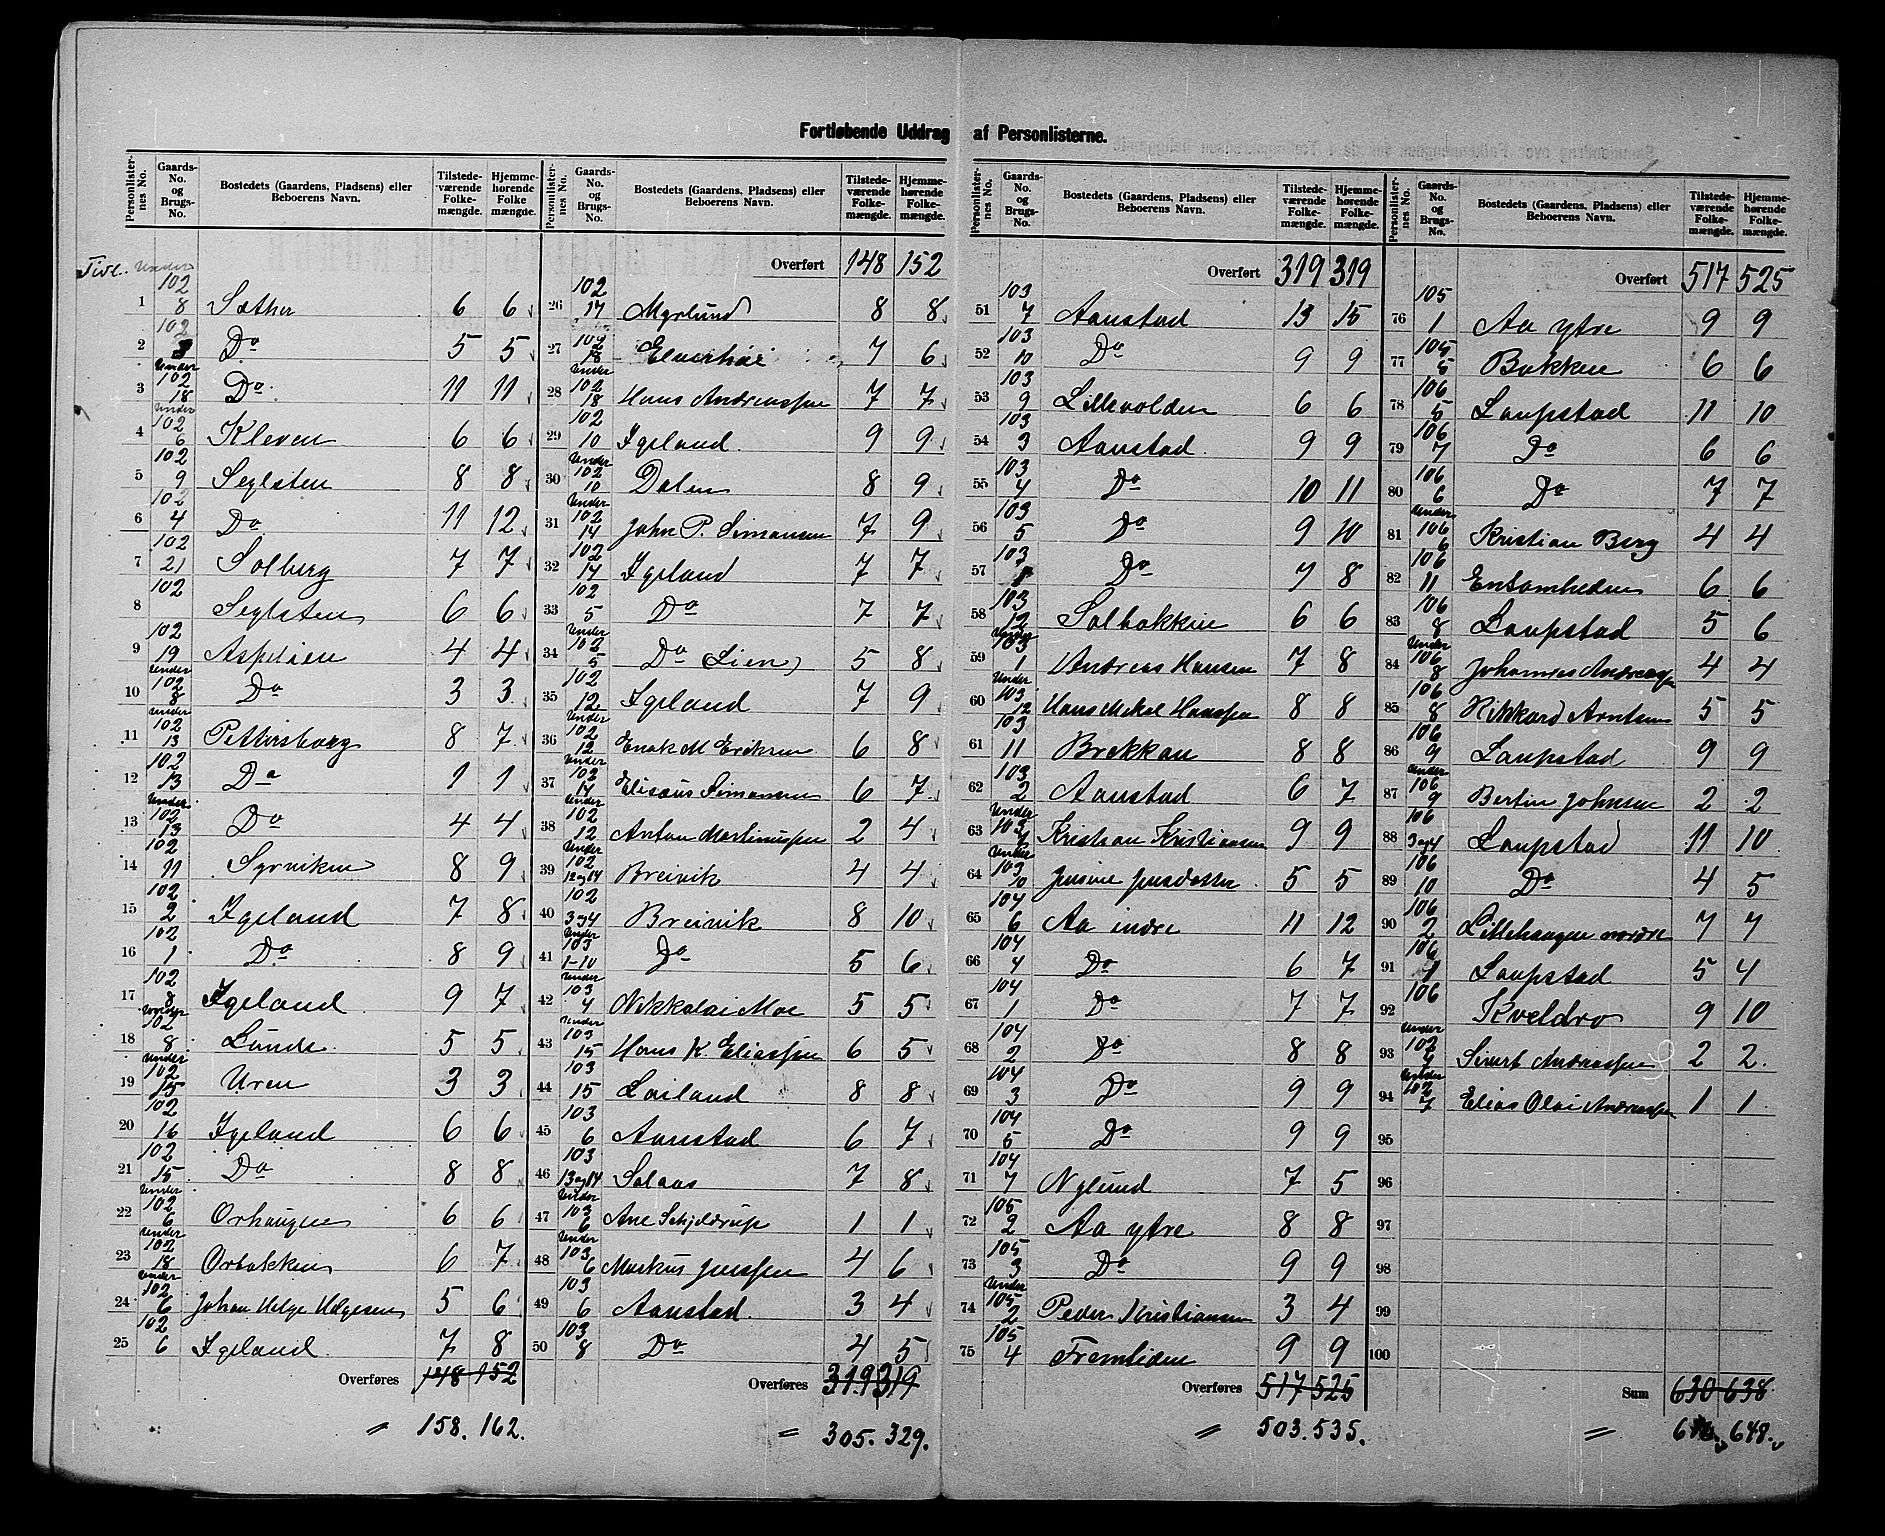 Fortløbende Uddrag af Personlisterne.
Personlister-nes No. Gaards-No. og Brugs-No. Bostedets (Gaardens, Pladsens) eller Beboerens Navn. Tilstede-værende Folke-mængde. Hjemme-hørende Folke mængde.
Tivl.
1 Under 102 8 Sæther 6 6
2 102 Do 5 5
3 Under 102 18 Do 11 11
4 Under 102 6 Kleven 6 6
5 102 9 Seglsten 8 8
6 102 4 Do 11 12
7 102 21 Solberg 7 7
8 102 Seglsten 6 6
9 102 19 Aspelien 4 4
10 Under 102 8 Do 3 3
11 Under 102 13 Pettersborg 8 7
12 102 13 Do 1 1
13 Under 102 13 Do 4 4
14 102 11 Syrviken 8 9
15 102 2 Igeland 7 8
16 102 1 Do 8 9
17 102 8 Igeland 9 7
18 102 8 Lunde 5 5
19 Under 102 15 Uren 3 3
20 102 16 Igeland 6 6
21 102 15 Do 8 8
22 Under 102 6 Orhaugen 6 6
23 Under 102 18 Orbakken 6 7
24 Under 102 6 Johan Helge Helgesen 5 6
25 102 6 Igeland 7 8
Overføres 148 152
〃 158. 162.
Personlister-nes No. Gaards-No. og Brugs-No. Bostedets (Gaardens, Pladsens) eller Beboerens Navn. Tilstede-værende Folke-mængde. Hjemme-hørende Folke-mængde.
Overført 148 152
26 102 17 Myrlund 8 8
27 102 18 Elverhøi 7 6
28 Under 102 18 Hans Andreassen 7 7
29 102 10 Igeland 9 9
30 Under 102 10 Dalen 8 9
31 Under 102 14 John P. Simonsen 7 9
32 102 14 Igeland 7 7
33 102 5 Do 7 7
34 Under 102 5 Do (Lien) 5 8
35 102 12 Igeland 7 9
36 Under 102 12 Enok M Eriksen 6 8
37 Under 102 14 Elisæus Simonsen 6 7
38 Under 102 12 Anton Martinussen 2 4
39 Under 102 12 og 14 Breivik 4 4
40 102 3 og 4 Breivik 8 10
41 Under 103 1-10 Do 5 6
42 Under 103 4 Nikkolai Moe 5 5
43 Under 103 15 Hans K. Eliassen 6 5
44 103 15 Lailand 8 8
45 103 6 Aanstad 6 7
46 103 13 og 14 Solaas 7 8
47 Under 103 6 Ane Schjelderup 1 1
48 Under 103 6 Markus Jenssen 4 6
49 103 6 Aanstad. 3 4
50 103 8 Do 4 5
Overføres 319 319
〃 305. 329.
Personlister-nes No. Gaards-No. og Brugs-No. Bostedets (Gaardens, Pladsens) eller Beboerens Navn. Tilstede-værende Folke-mængde. Hjemme-hørende Folke-mængde.
Overført 319 319
51 103 7 Aanstad 13 15
52 103 10 Do 9 9
53 103 9 Lillevolden 6 6
54 103 3 Aanstad. 9 9
55 103 4 Do 10 11
56 103 5 Do 9 10
57 103 1 Do 7 8
58 103 12 Solbakken 6 6
59 Under 103 1 Andreas Hansen 7 8
60 Under 103 12 Hans Mikal Hanssen 8 8
61 103 11 Brekkan 8 8
62 103 2 Aanstad 6 7
63 Under 103 Kristian Kristiansen 9 9
64 Under 103 10 Jensine Jensdatter 5 5
65 104 6 Aa indre 11 12
66 104 4 Do 6 7
67 104 1 Do 7 7
68 104 2 Do 8 8
69 104 3 Do 9 9
70 104 5 Do 9 9
71 104 7 Nylund 7 5
72 105 2 Aa ytre 8 8
73 105 3 Do 9 9
74 Under 105 2 Peder Kristiansen 3 4
75 105 4 Fremtiden 9 9
Overføres 517 525
〃 503. 535.
Personlister-nes No. Gaards-No. og Brugs-No. Bostedets (Gaardens, Pladsens) eller Beboerens Navn. Tilstede-værende Folke-mængde. Hjemme-hørende Folke-mængde.
Overført 517 525
76 105 1 Aa ytre 9 9
77 105 5 Bakken 6 6
78 106 5 Laupstad 11 10
79 106 7 Do 6 6
80 106 6 Do 7 7
81 Under 106 6 Kristian Berg 4 4
82 106 11 Ensomheden 6 6
83 106 8 Laupstad 5 6
84 Under 106 8 Johannes Andreassen 4 4
85 106 8 Rikkard Arntsen 5 5
86 106 9 Laupstad 9 9
87 Under 106 9 Bertin Johnsen 2 2
88 106 3 og 4 Laupstad 11 10
89 106 10 Do 4 5
90 106 2 Lillehaugen nordre 7 7
91 106 1 Laupstad 5 4
92 106 Kveldro 9 10
93 Under 102 Sivert Andreassen 2 2.
94 Under 102 7 Elias Olai Andreassen 1 1
95
96
97
98
99
100
Sum 630 638
〃 648.